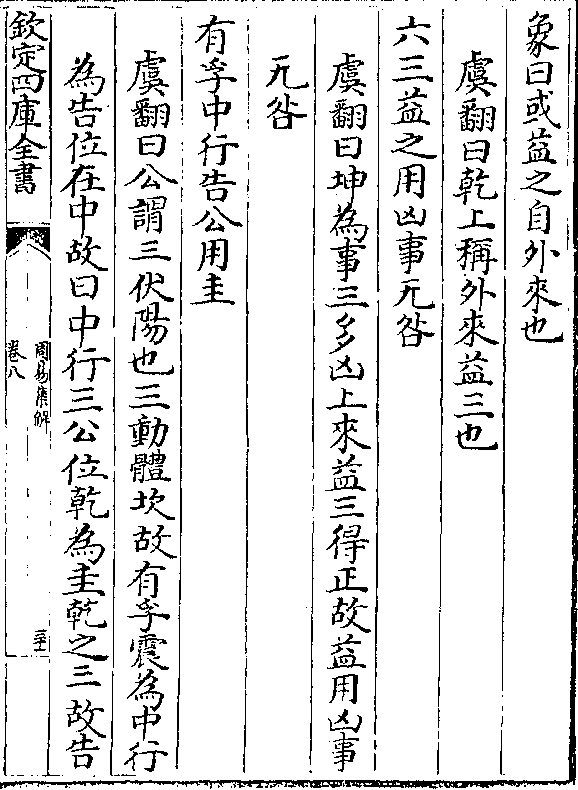 象曰或益之自外來也
虞翻曰乾上稱外來益三也
六三益之用凶事无咎
虞翻曰坤為事三多凶上來益三得正故益用凶事
无咎
有孚中行告公用圭
虞翻曰公謂三伏陽也三動體坎故有孚震為中行
為告位在中故曰中行三公位乾為圭乾之三故告
欽定四庫全書
周易集解
卷八